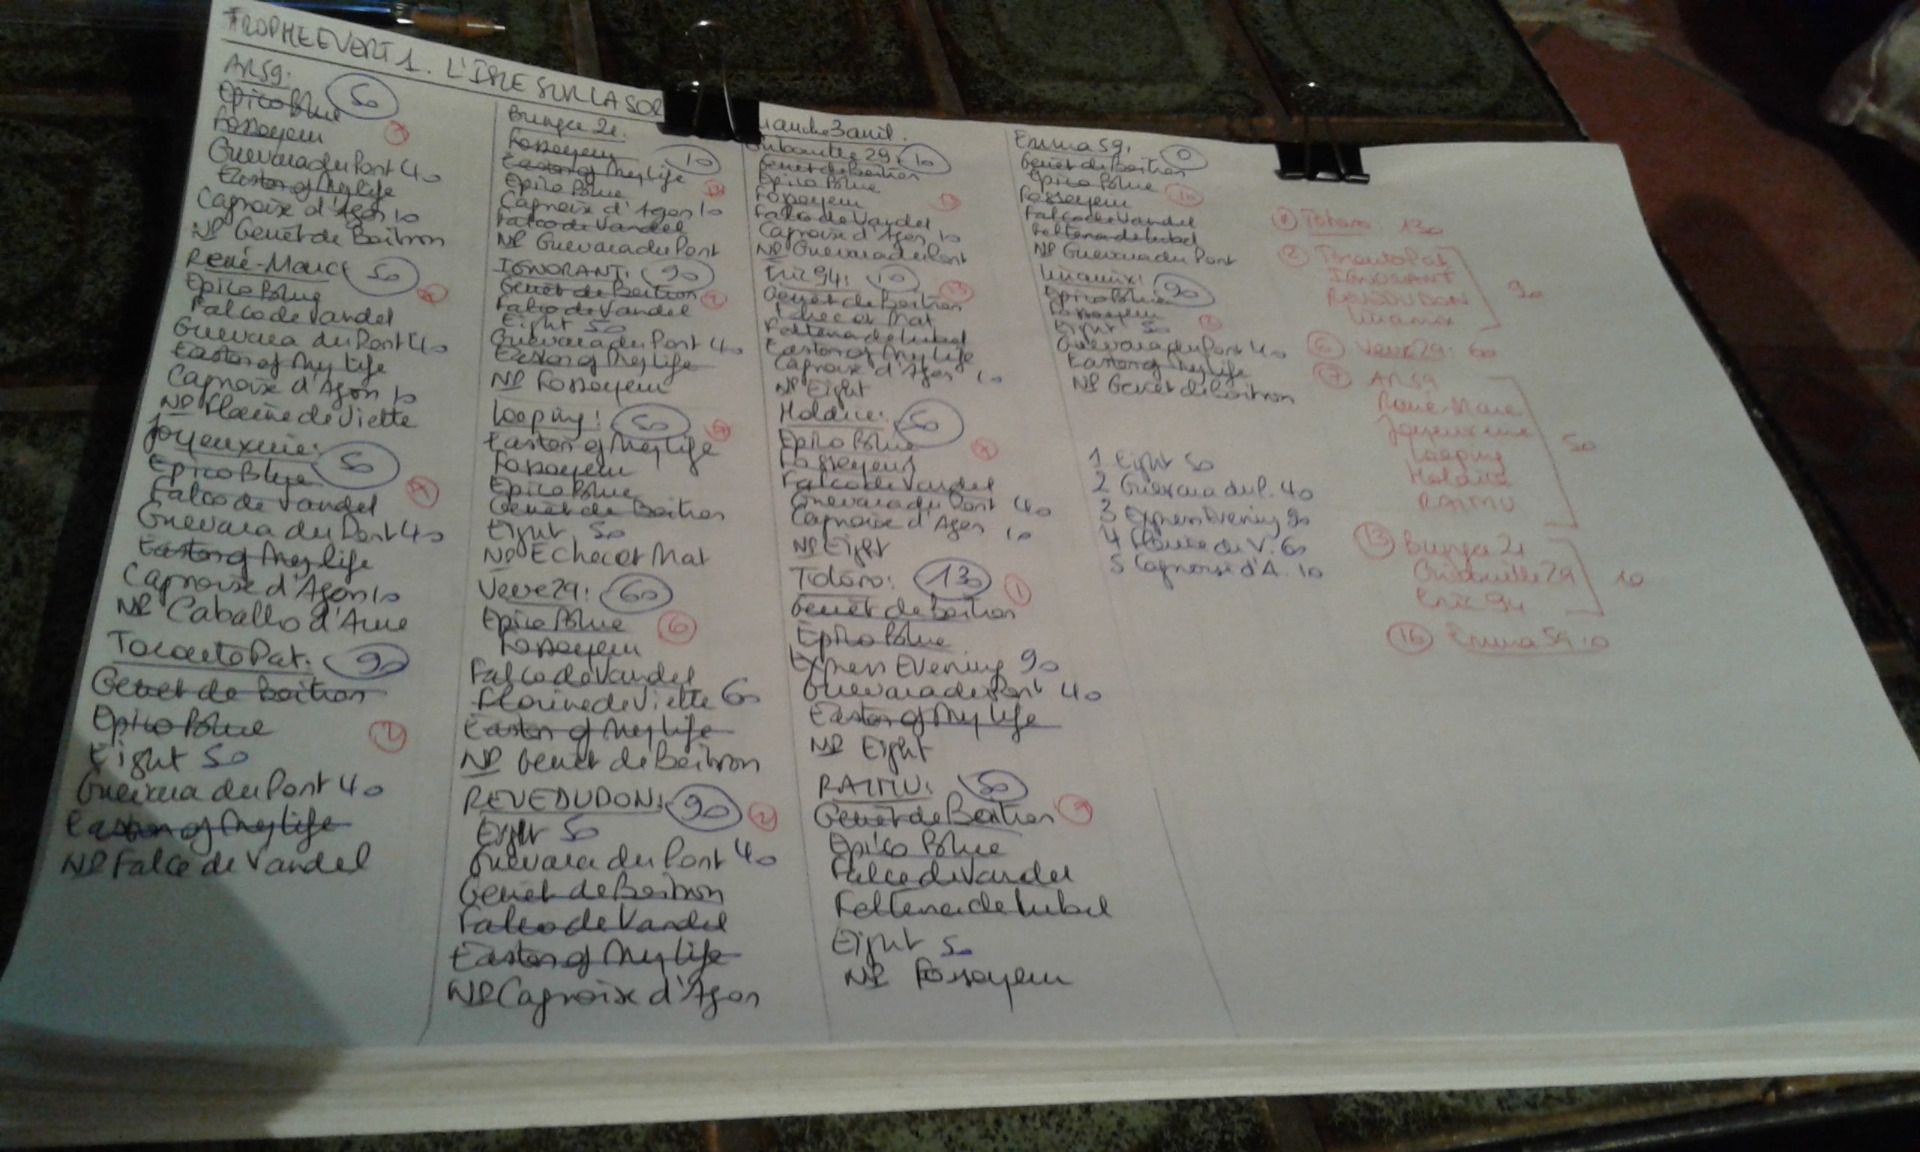 TROPHEE VERT 1. L'ISLE SUR LA SOR
manche 3 avril.
AR59: 50
Epico Blue
Fossoyeur 7
Guevara du Pont 40
Easton of My life
Capnoise d'Agon 10
NP Genêt de Boitron
René-Marc: 50
Epico Blue 7
Falco de Vandel
Guevara du Pont 40
Easton of My life
Capnoise d'Agon 10
NP Florine de Viette
Joyeuxerie: 50
Epico Blue
Falco de Vandel 7
Guevara du Pont 40
Easton of My life
Capnoise d'Agon 10
NP Caballo d'Avre
TorontoPat: 90
Genêt de Boitron
Epico Blue 2
Eight 50
Guevara du Pont 40
Easton of My life
NP Falco de Vandel
Bunga 21: 10
Fossoyeur
Easton of My life
Epico Blue 13
Capnoise d'Agon 10
Falco de Vandel
NP Guevara du Pont
IGNORANT: 90
Genêt de Boitron 2
Falco de Vandel
Eight 50
Guevara du Pont 40
Easton of My life
NP Fossoyeur
Looping: 50
Easton of My life 7
Fossoyeur
Epico Blue
Genêt de Boitron
Eight 50
NP Echec et Mat
Veve29: 60
Epico Blue 6
Fossoyeur
Falco de Vandel
Florine de Viette 60
Easton of My life
NP Genêt de Boitron
REVEDUDON: 90 2
Eight 50
Guevara du Pont 40
Genêt de Boitron
Falco de Vandel
Easton of My life
NP Capnoise d'Agon
29: 10
Genêt de Boitron
Epico Blue
Fossoyeur 13
Falco de Vandel
Capnoise d'Agon 10
NP Guevara du Pont
Eric94: 10
Genêt de Boitron 13
Echec et Mat
Feltena de Lubel
Easton of My life
Capnoise d'Agon 10
NP Eight
Holdice: 50
Epico Blue
Fossoyeur 7
Falco de Vandel
Guevara du Pont 40
Capnoise d'Agon 10
NP Eight
Totoro: 130 1
Genêt de Boitron
Epico Blue
Express Evening 90
Guevara du Pont 40
Easton of My life
NP Eight
RAIMU: 50
Genêt de Boitron 7
Epico Blue
Falco de Vandel
Feltena de Lubel
Eight 50
NP Fossoyeur
Emma59: 0
Genêt de Boitron
Epico Blue 16
Fossoyeur
Falco de Vandel
Feltena de Lubel
NP Guevara du Pont
90
Epico Blue
Fossoyeur
Eight 50 2
Guevara du Pont 40
Easton of My life
NP Genêt de Boitron
1 Eight 50
2 Guevara du P. 40
3 Express Evening 90
4 Florine de V. 60
5 Capnoise d'A. 10
1 Totoro: 130
2 TorontoPat
IGNORANT
REVEDUDON
90
6 Veve29: 60
7 AR59
René-Marc
Joyeuxerie
Looping
Holdice
RAIMU
50
13 Bunga 21
Eric 94
10
16 Emma59: 0